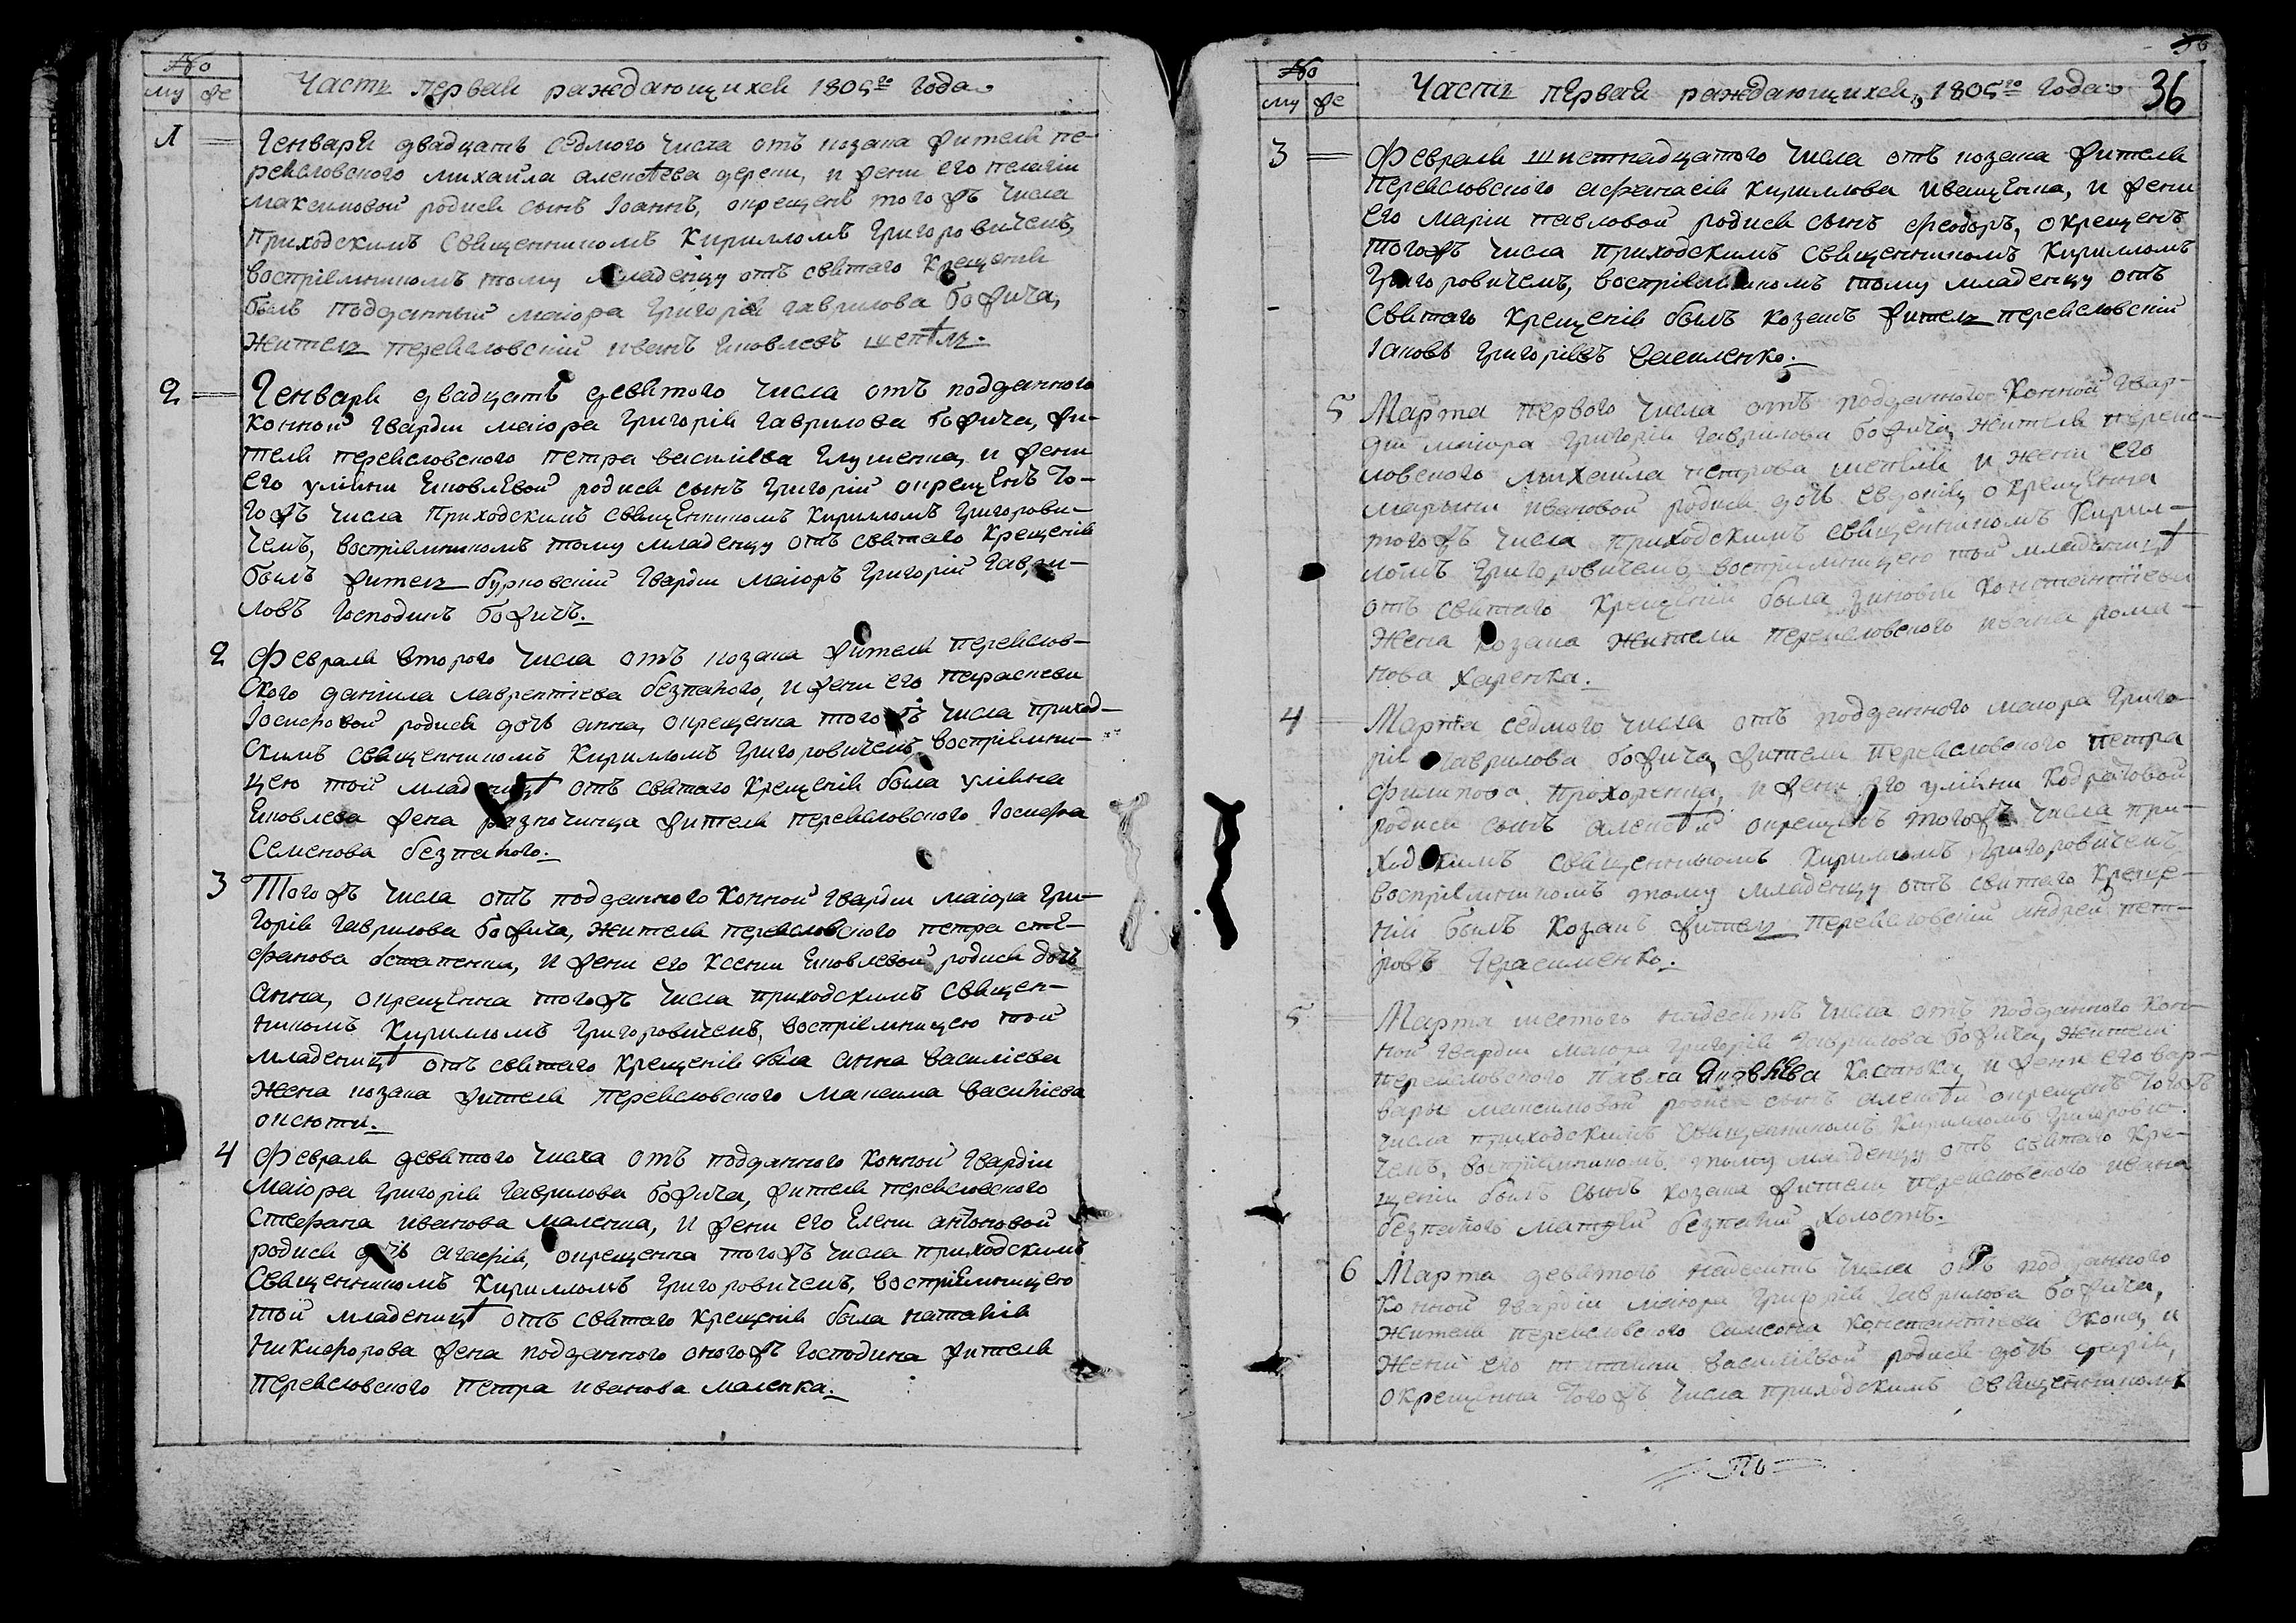 №
му же Часть первая раждающихся 1805го года
1 Генваря двадцать седмого числа отъ козака жителя пе-
реясловского михайла алексѣева дереки, и жени его пелагіи
максимовой родися сынъ Іоаннъ, окрещенъ того жъ числа
Приходскимъ Священникомъ Кирилломъ Григоровичемъ,
воспріемникомъ тому младенцу отъ святаго Крещенія
былъ подданный маіора Григорія гаврилова божича,
житель переясловскій иванъ яковлевъ шепѣль.
2 Генваря двадцать девятого числа отъ подданного
конной гвардіи маіора Григорія гаврилова божича, жи-
теля переясловского петра василіева глушенка, и жени
его уліяни яковлевой родися сынъ григорій окрещенъ то-
гожъ числа Приходскимъ священникомъ Кирилломъ Григорови-
чемъ, воспріемникомъ тому младенцу отъ святаго крещенія
былъ житель бурковскій гвардіи маіоръ григорій гаври-
ловъ господинъ божичъ.
2 Февраля второго числа отъ козака жителя переяслов-
ского даніила лаврентіева безпалого, и жени его параскеви
Іосифовой родися дочь анна, окрещенна того жъ числа приход-
скимъ священникомъ Кирилломъ Григоровичемъ, воспріемни-
цею той младеницѣ отъ святаго Крещенія была уліяна
яковлева жена разночинца жителя переясловского Іосифа
Семенова безпалого.
3 Тогожъ числа отъ подданного конной гвардіи маіора гри-
горія гаврилова божича, жителя переясловского петра сте-
фанова остапенка, и жени его ксеніи яковлевой родися дочь
анна, окрещенна тогожъ числа приходскимъ священ-
никомъ Кирилломъ Григоровичемъ, воспріемницею той
младеницѣ отъ святаго Крещенія была анна василіева
жена козака жителя переясловского максима василіева
оксюти.
4 Февраля девятого числа отъ подданного конной гвардіи
маіора григорія гаврилова божича, жителя переясловского
стефана иванова маленка, и жени его Елени антоновой
родися дочь агафія, окрещенна тогожъ числа приходскимъ
Священникомъ Кирилломъ Григоровичемъ, воспріемницею
той младеницѣ отъ святаго крещенія была наталія
никифорова жена подданного оногожъ господина жителя
переясловского петра иванова маленка.
36
№
му же Часть первая раждающихся, 1805го года 36
3 Февраля шистнадцатого числа отъ козака жителя
переясловского афанасія кирилова иващенка, и жени
его маріи павловой родися сынъ феодоръ, окрещенъ
тогожъ числа приходскимъ священникомъ Кирилломъ
Григоровичемъ, воспріемникомъ тому младенцу отъ
святаго крещенія былъ козакъ житель переясловскій
Іаковъ григоріевъ василенко.
5 Марта первого числа отъ подданного конной гвар-
діи маіора григорія гаврилова божича, жителя переяс-
ловского михаила петрова шепеля и жени его
марьяни ивановой родися дочь евдокія, окрещенна
тогожъ числа приходскимъ священникомъ Кирил-
ломъ григоровичемъ, воспріемницею той младеницѣ
отъ святаго Крещенія была зиновія константіева
жена козака жителя переясловского ивана рома-
нова харенка.
4 Марта седмого числа отъ подданного маіора григо-
рія гаврилова божича, жителя переясловского петра
филипова прохоренка, и жени его уліяни кодратовой
родися сынъ алексѣй окрещенъ тогожъ числа при-
ходскимъ священникомъ Кирилломъ Григоровичемъ
воспріемникомъ тому младенцу отъ святаго креще-
нія былъ козакъ житель переясловскій андрей пет-
ровъ герасименко.
5 Марта шестого надесять числа отъ подданного кон-
ной гвардіи маіора григорія гаврилова божича, жителя
переясловского павла яковлева костюка, и жени его вар-
вары максимовой родися сынъ алексѣй окрещенъ тогожъ
числа приходскимъ священникомъ Кирилломъ Григорови-
чемъ, воспріемникомъ тому младенцу отъ святаго кре-
щенія былъ сынъ козака жителя переясловского ивана
безпалого матвій безпалій холостъ.
6 Марта девятого надесять числа отъ подданного
конной гвардіи маіора григорія гаврилова божича,
жителя переясловского симеона константіева скока, и
жени его татіяни василіевой родися дочь дарія,
окрещенна тогожъ числа приходскимъ священникомъ